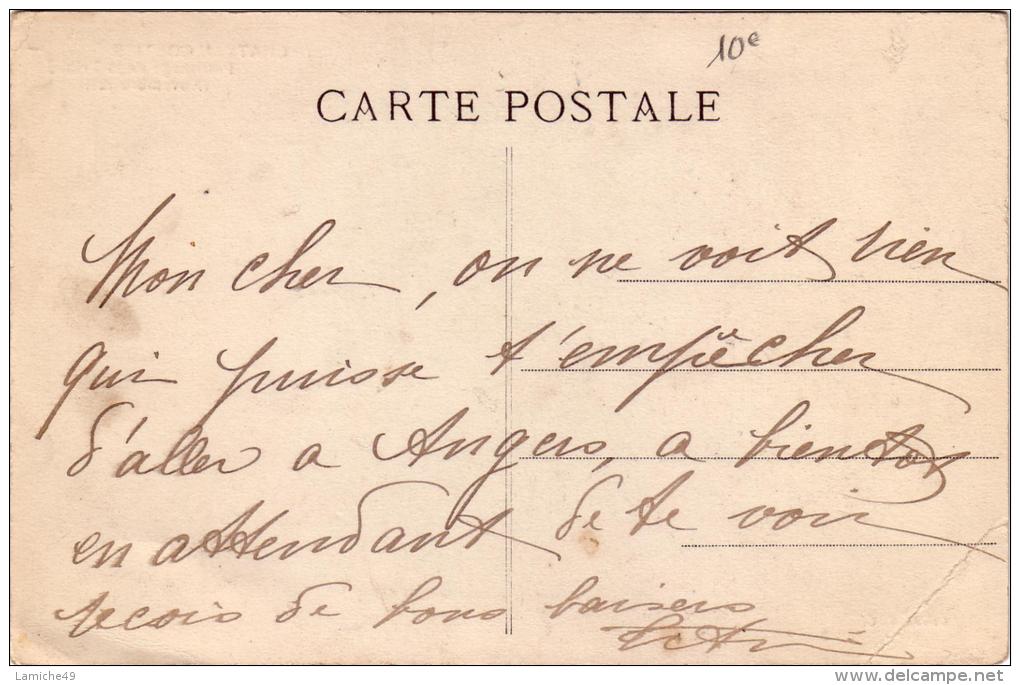 10e
CARTE POSTALE
Mon cher, on ne voit rien
qui puisse t'empêcher
d'aller a Angers, a bientot
en attendant de te voir
recois de bons baisers
Lamiche49
delcampe.net